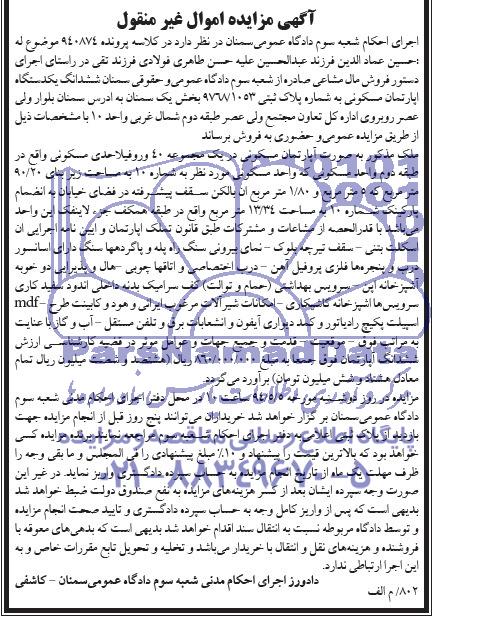 آگهی مزایده اموال غیر منقول
اجرای احکام شعبه سوم دادگاه عمومی‌سمنان در نظر دارد در کلاسه پرونده ۹۴۰۸۷۴ موضوع له
:حسین عماد الدین فرزند عبدالحسین علیه حسن طاهری فولادی فرزند تقی در راستای اجرای
دستور فروش مال مشاعی صادره از شعبه سوم دادگاه عمومی‌و حقوقی سمنان ششدانگ یکدستگاه
اپارتمان مسکونی به شماره پلاک ثبتی ۹۷۶۸/۱۰۵۳ بخش یک سمنان به ادرس سمنان بلوار ولی
عصر روبروی اداره کل تعاون مجتمع ولی عصر طبقه دوم شمال غربی واحد ۱۰ با مشخصات ذیل
از طریق مزایده عمومی‌و حضوری به فروش برساند
ملک مذکور به صورت آپارتمان مسکونی در یک مجموعه ۴۰ و واحدی مسکونی واقع در
طبقه دوم واحد مسکونی که واحد مسکونی مورد نظر به شماره ۱۰ به مساحت زیر بنای ۹۰/۲۰
متر مربع که ۵ متر مربع و ۱/۸۰ متر مربع ان بالکن سقف پیشرفته در فضای خیابان به انضمام
پارکینگ شماره ۱۰ به مساحت ۱۳/۳۴ متر مربع واقع در طبقه همکف جزء لاینفک این واحد
می‌باشد با قدرالحصه از مشاعات و مشترکات طبق قانون تملک اپارتمان و ایین نامه اجرایی ان
اسکلت بتنی – سقف تیرچه بلوک – نمای بیرونی سنگ راه پله و پاگردهها سنگ دارای اسانسور
درب و پنجره‌ها فلزی پروفیل آهن – درب اختصاصی و اتاقها چوبی –هال و پذیرایی دو خوبه
آشپزخانه اپن – سرویس بهداشتی (حمام و توالت) کف سرامیک بدنه داخلی اندود سفید کاری
سرویس‌ها اشپزخانه کاشیکاری – امکانات شیرآلات مرغوب ایرانی و هود و کابینت طرح mdf –
اسپیلت پکیج رادیاتور و کمد دیواری آیفون و انشعابات برق و تلفن مستقل – آب و گاز با عنایت
به مراتب فوق – موقعیت – قدمت و جمیع جهات و عوامل موثر در قضیه کارشناسی ارزش
ششدانگ آپارتمان فوق جمعا به مبلغ ۸۶۰/۰۰۰/۰۰۰ ریال (هشتصد و شصت میلیون ریال تمام
معادل هشتاد و شش میلیون تومان) برآورد می‌گردد.
مزایده در روز دوشنبه مورخه ۹۴/۵/۵ ساعت ۱۰ در محل دفتر اجرای احکام مدنی شعبه سوم
دادگاه عمومی‌سمنان برگزار خواهد شد خریداران می‌توانند پنج روز قبل از انجام مزایده جهت
بازدید از پلاک ثبتی اعلامی به دفتر اجرای احکام شعبه سوم مراجعه نمایند برنده مزایده کسی
خواهد بود که بالاترین قیمت را پیشنهاد و ۱۰٪ مبلغ پیشنهادی را فی المجلس و ما بقی وجه را
ظرف مهلت یک ماه از تاریخ انجام مزایده به حساب سپرده دادگستری واریز نماید. در غیر این
صورت وجه سپرده ایشان بعد از کسر هزینه‌های مزایده به نفع صندوق دولت ضبط خواهد شد
بدیهی است که پس از واریز کامل وجه به حساب سپرده دادگستری و تایید صحت انجام مزایده
و توسط دادگاه مربوطه نسبت به انتقال سند اقدام خواهد شد بدیهی است که بدهی‌های معوقه با
فروشنده و هزینه‌های نقل و انتقال با خریدار می‌باشد و تخلیه و تحویل تابع مقررات خاص و به
این اجرا ارتباطی ندارد.
دادورز اجرای احکام مدنی شعبه سوم دادگاه عمومی‌سمنان – کاشفی
۸۰۲/ م الف
پایگاه اطلاع رسانی مناقصه و مزایده
۰۲۱-۸۸۳۴۹۶۷۰-۵